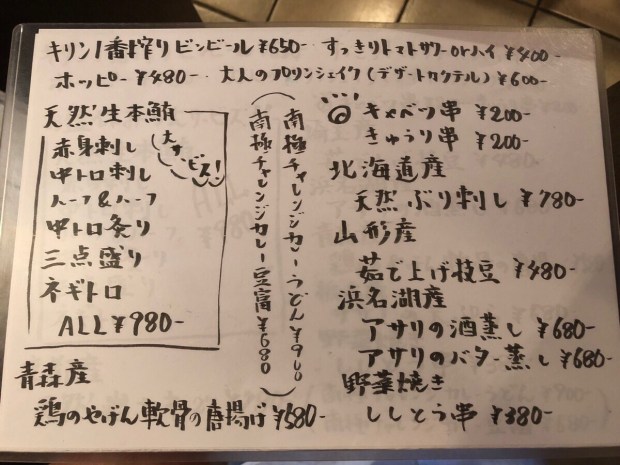 キリン1番搾りビンビール ¥650- すっきりトマトサワーorハイ ¥400-
ホッピー ¥480- 大人のプリンシェイク(デザートカクテル) ¥600-
天然生本鮪
大サービス!
赤身刺し
中トロ刺し
ハーフ&ハーフ
中トロ炙り
三点盛り
ネギトロ
ALL ¥980-
青森産
鶏のやげん軟骨の唐揚げ ¥580-
南極チャレンジカレーうどん ¥900
南極チャレンジカレー豆富 ¥680
キャベツ串 ¥200-
きゅうり串 ¥200-
北海道産
天然ぶり刺し ¥780-
山形産
茹で上げ枝豆 ¥480-
浜名湖産
アサリの酒蒸し ¥680-
アサリのバター蒸し ¥680-
野菜焼き
ししとう串 ¥380-